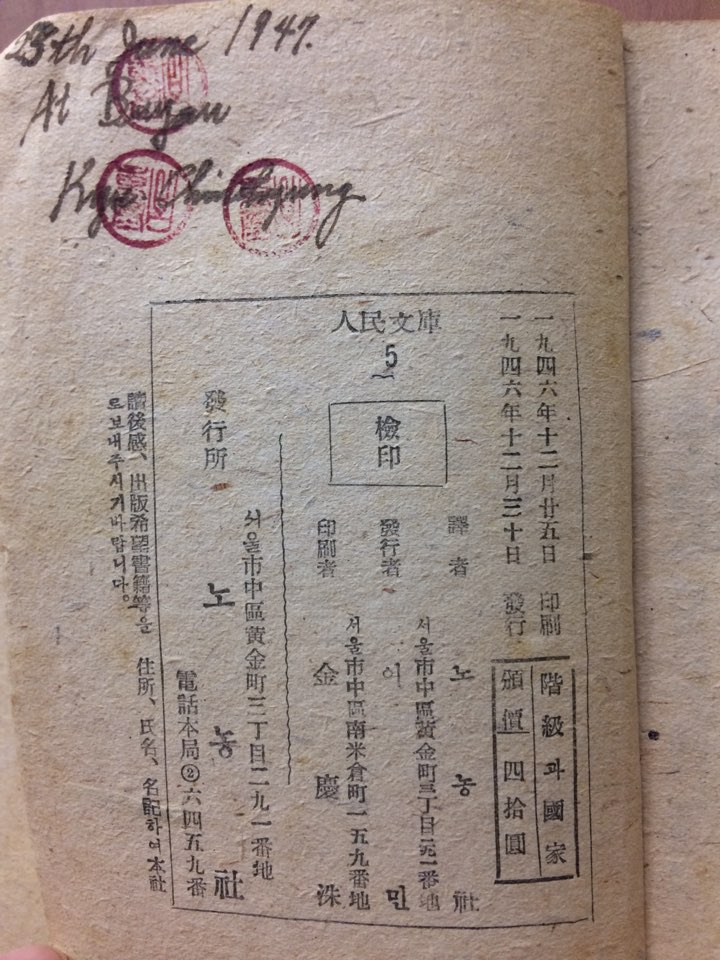 25th June 1947.
At Buyau
一九四六年十二月廿五日 印刷
一九四六年十二月三十日 發行
階級과國家
頒價 四拾圓
人民文庫
5
檢印
譯者 노농社
서울市中區黃金町三丁目二九一番地
發行者 이민
서울市中區南米倉町一五九番地
印刷者 金慶洙
서울市中區黃金町三丁目二九一番地
發行所 노농社
電話本局②六四五九番
讀後感、出版希望書籍等을 住所、氏名、名記하여本社
로보내주시기바랍니다。